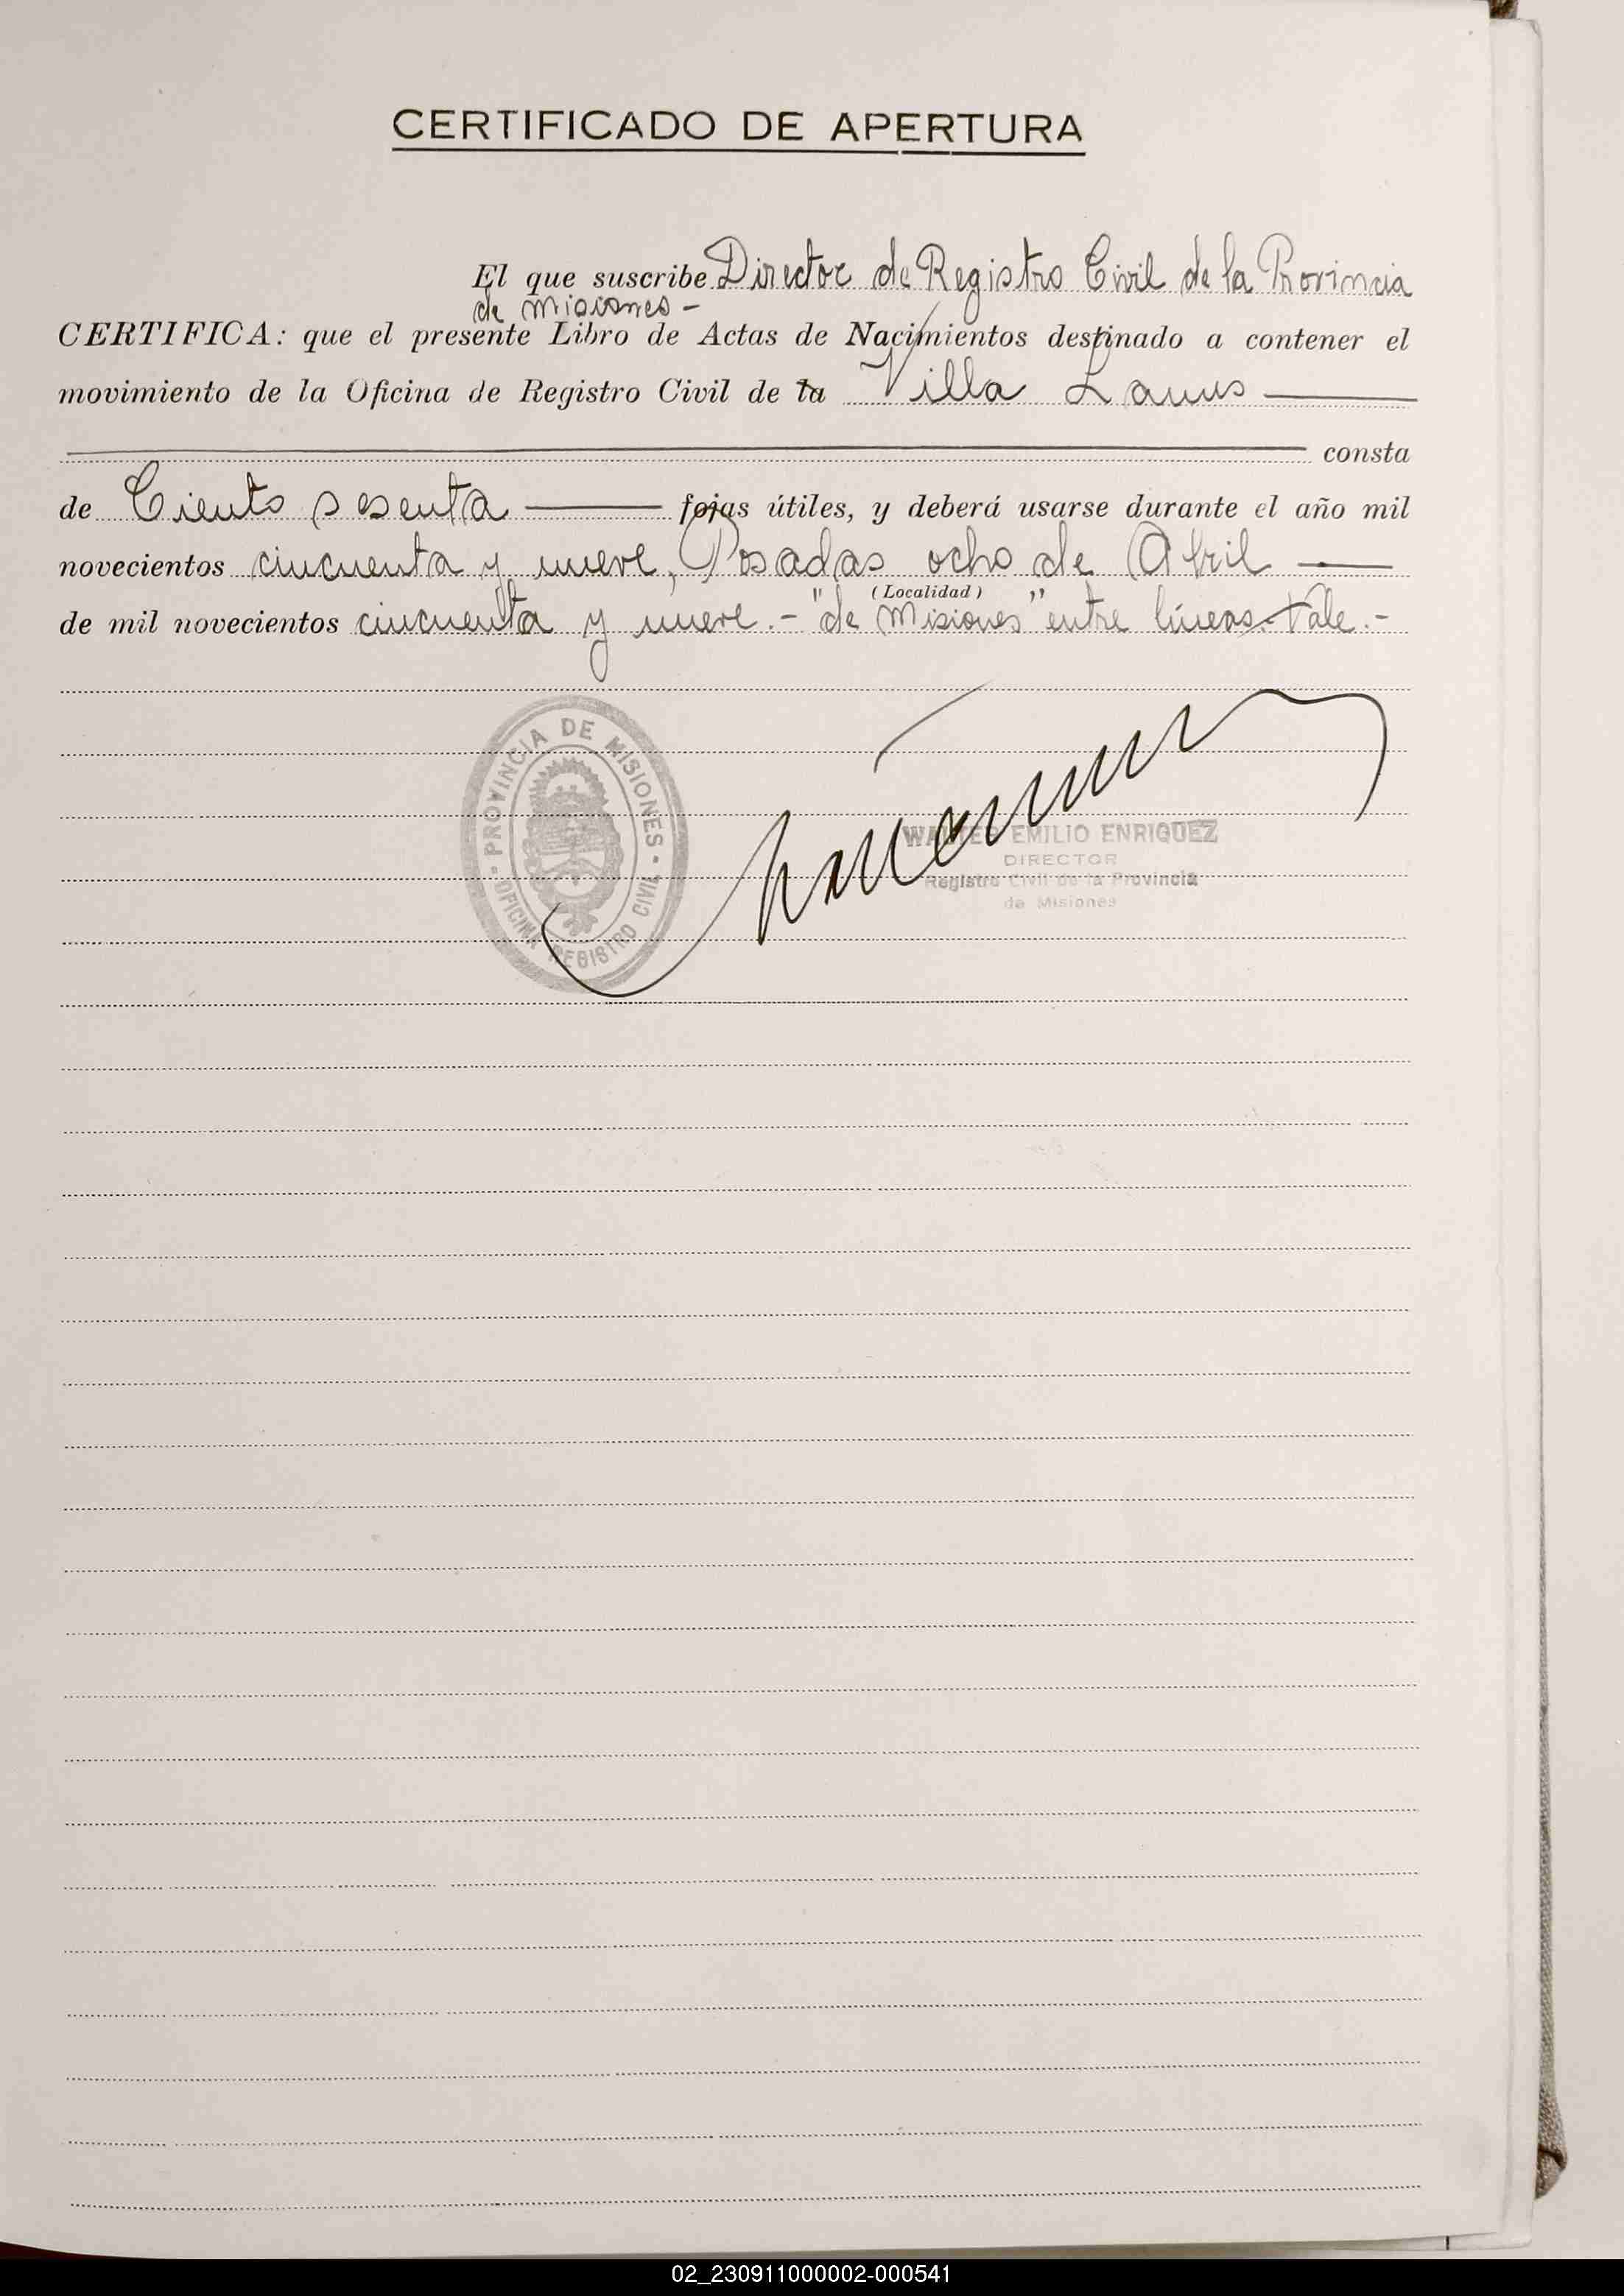 CERTIFICADO DE APERTURA
El que suscribe Director de Registro Civil de la Provincia
de Misiones -
CERTIFICA: que el presente Libro de Actas de Nacimientos destinado a contener el
movimiento de la Oficina de Registro Civil de la Villa Lanus
consta
de Ciento sesenta fojas útiles, y deberá usarse durante el año mil
novecientos cincuenta y nueve, Posadas ocho de Abril
(Localidad)
de mil novecientos cincuenta y nueve.- "de Misiones" entre líneas.- Vale.-
PROVINCIA DE MISIONES
OFICINA REGISTRO CIVIL
WALTER EMILIO ENRIQUEZ
DIRECTOR
Registro Civil de la Provincia
de Misiones
02_230911000002-000541